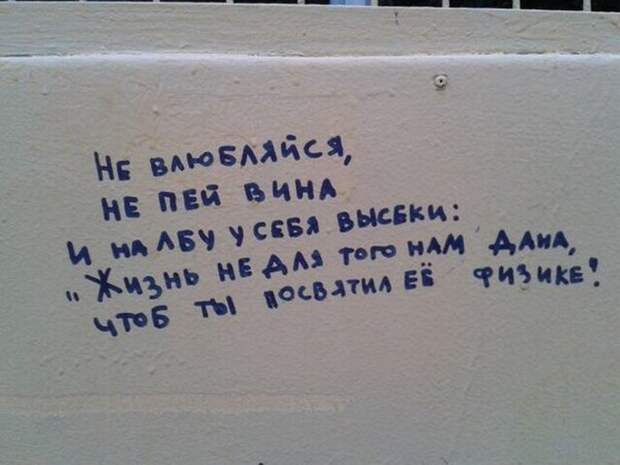 Не влюбляйся,
не пей вина
и на лбу у себя высеки:
"Жизнь не для того нам дана,
чтоб ты посвятил её физике!